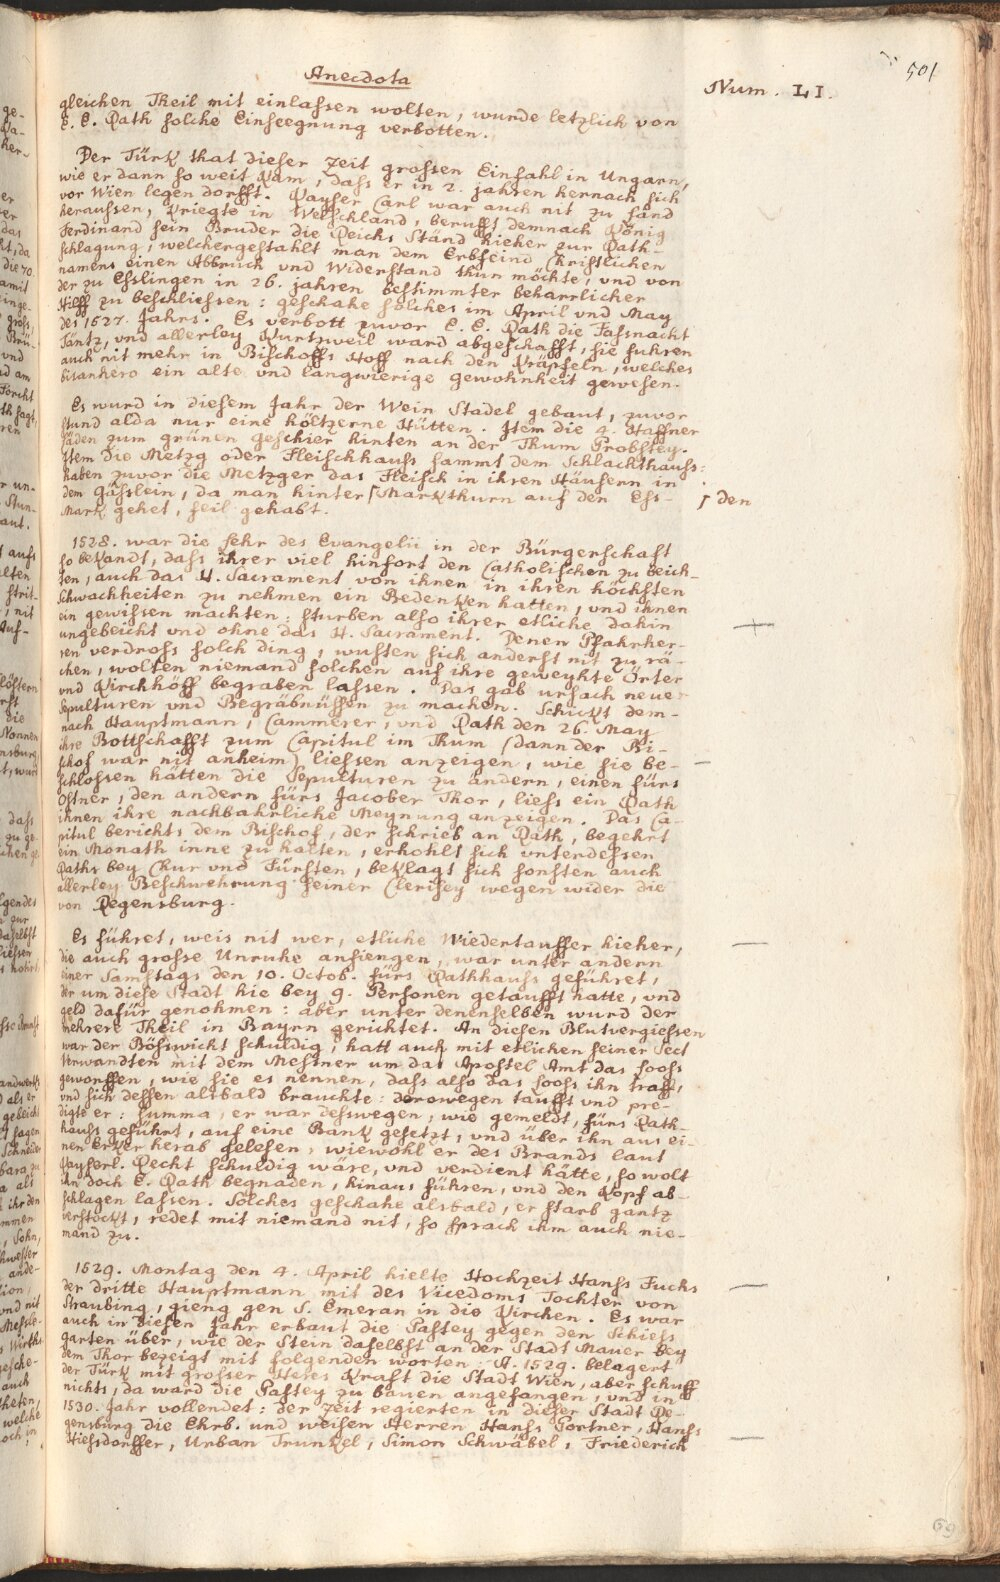 501
Anecdota
Num. LI.
gleichen Theil mit einlassen wolten, wurde letzlich von
E. E. Rath solche Einseegnung verbotten.
Der Türk that dieser Zeit grossen Einfahl in Ungarn,
wie er dann so weit kam, dass er in 2. jahren hernach sich
vor Wien legen dorfft. Kayser Carl war auch nit zu Land
heraussen, kriegte in Welschland, berufft demnach König
Ferdinand sein Bruder die Reichs Ständ hieher zur Rath-
schlagung, welchergestahlt man dem Erbfeind Christlichen
namens einen Abbruch vnd Widerstand thun möchte, vnd von
der zu Esslingen in 26. jahren bestimmter beharrlicher
Hilff zu beschliessen: geschahe solches im April vnd May
des 1527. Jahrs. Es verbott zuvor E. E. Rath die Fassnacht
Täntz, vnd allerley Kurtzweil ward abgeschafft, sie fuhren
auch nit mehr in Bischoffs Hoff nach den Kräpfeln, welches
bisanhero ein alte vnd langwierige gewohnheit gewesen.
Es wurd in diesem Jahr der Wein Stadel gebaut, zuvor
stund alda nur eine höltzerne Hütten. Item die 4. Haffner
Läden zum grünen geschier hinten an der Thum Probstey.
Item die Metzg oder Fleischhauss sammt dem Schlachthauss:
haben zuvor die Metzger das Fleisch in ihren Häusern in
dem gässlein, da man hinter ſ Markthurn auf den Ess-
Mark gehet, feil gehabt.
ſ den
1528. war die Lehr des Evangelii in der Bürgerschaft
so bekandt, dass ihrer viel hinfort den Catholischen zu beich-
ten, auch das H. Sacrament von ihnen in ihren höchsten
Schwachheiten zu nehmen ein Bedenken hatten, vnd ihnen
ein gewissen machten: sturben also ihrer etliche dahin
ungebeicht vnd ohne das H. Sacrament. Denen Pfahrher-
ren verdross solch ding, wusten sich anderst nit zu rä-
chen, wolten niemand solchen auf ihre geweyhte Örter
vnd Kirchhöff begraben lassen. Das gab ursach neue
Sepulturen vnd Begräbnüssen zu machen. Schickt dem-
nach Hauptmann, Cammerer, vnd Rath den 26. May
ihre Bottschafft zum Capitul im Thum (dann der Bi-
schof war nit anheim) liessen anzeigen, wie sie be-
schlossen hätten die Sepulturen zu ändern, einen fürs
Ostner, den andern fürs Jacober Thor, liess ein Rath
ihnen ihre nachbahrliche Meynung anzeigen. Das Ca-
pitul berichts dem Bischof, der schrieb an Rath, begehrt
ein Monath inne zu halten, erhohlt sich vnterdessen
Raths bey Chur vnd Fürsten, beklagt sich sonsten auch
allerley Beschwehrung seiner Clerisey wegen wider die
von Regensburg.
Es führet, weis nit wer, etliche Wiedertauffer hieher,
die auch grosse Unruhe anfiengen, war unter andern
einer Samstags den 10. Octob. fürs Rathhauss geführet,
der um diese Stadt hie bey 9. Personen getaufft hatte, vnd
geld dafür genohmen: aber unter denenselben wurd der
mehrere Theil in Bayrn gerichtet. An diesen Blutvergiessen
war der Bösswicht schuldig, hatt auch mit etlichen seiner Sect
Verwandten mit dem Messner um das Apostel Amt das Looss
geworffen, wie sie es nennen, dass also das Looss ihn traff,
vnd sich dessen alsbald brauchte: derowegen taufft vnd pre-
digte er: summa, er war desswegen, wie gemeldt, fürs Rath-
hauss geführt, auf eine Bank gesetzt, vnd über ihn aus ei-
nen Erker herab gelesen, wiewohl er des Brands laut
Kayserl. Recht schuldig wäre, vnd verdient hätte, so wolt
ihn doch E. Rath begnaden, hinaus führen, vnd den Kopf ab-
schlagen lassen. Solches geschahe alsbald, er starb gantz
verstockt, redet mit niemand nit, so sprach ihm auch nie-
mand zu.
1529. Montag den 4. April hielte Hochzeit Hanss Fuchs
der dritte Hauptmann mit des Vicedoms Tochter von
Straubing, gieng gen S. Emeran in die Kirchen. Es war
auch in diesen Jahr erbaut die Pastey gegen den Schiess
garten über, wie der Stein daselbst an der Stadt Mauer bey
dem Thor bezeigt mit folgenden worten: A. 1529. belagert
der Türk mit grosser Heres Kraft die Stadt Wien, aber schuff
nichts, da ward die Pastey zu bauen angefangen, vnd in
1530. Jahr vollendet: der zeit regierten in dieser Stadt Re-
gensburg die Ehrb. und weisen Herren Hanss Portner, Hanss
Hiessdorffer, Urban Trunkel, Simon Schwäbel, Friederich
69